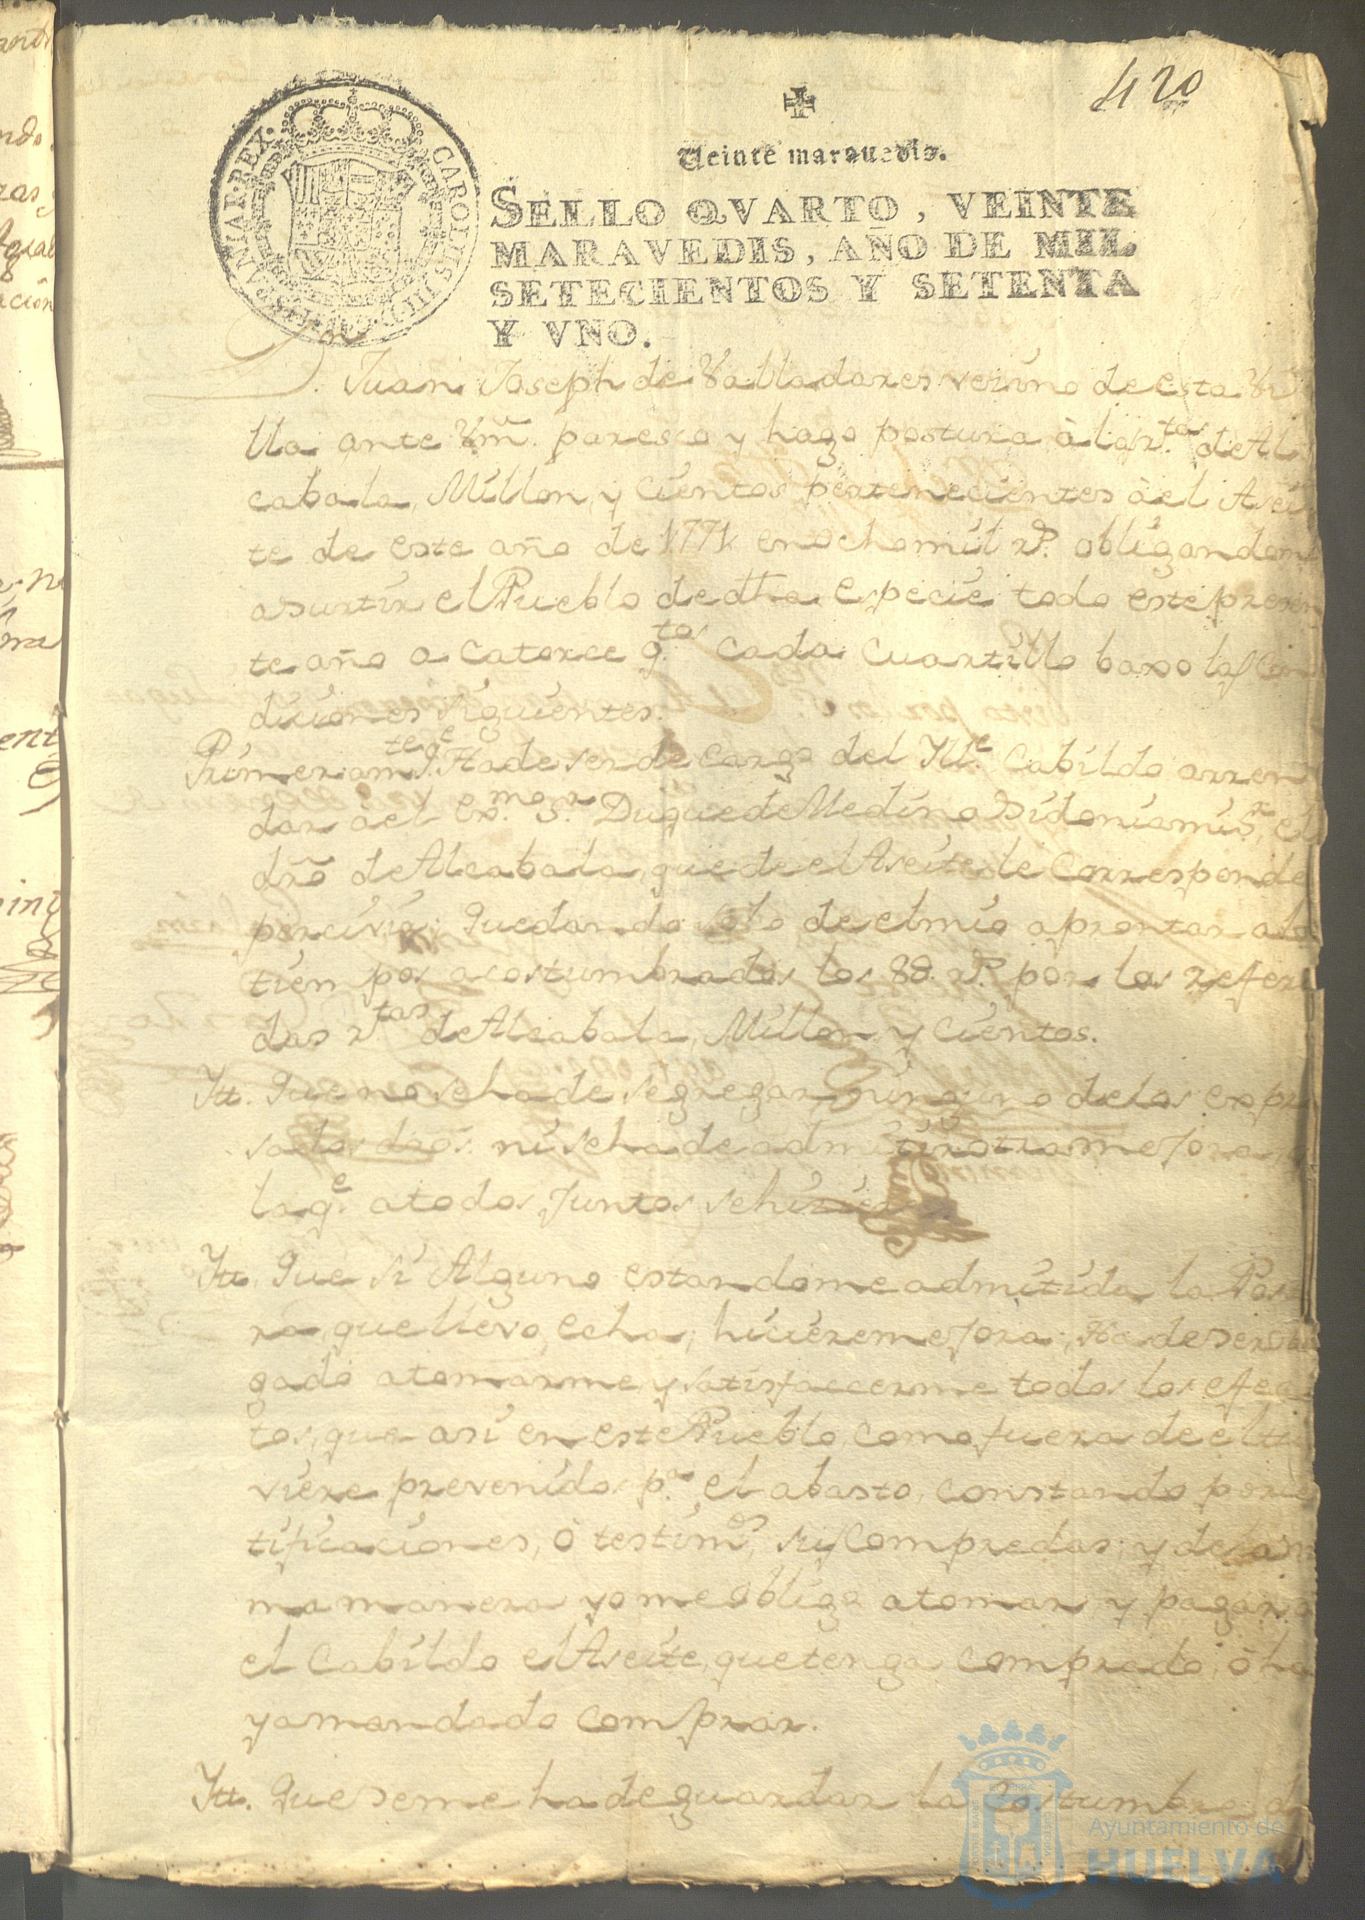 420
Veinte maravedis.
SELLO QVARTO, VEINTE
MARAVEDIS, AÑO DE MIL
SETECIENTOS Y SETENTA
Y VNO.
CAROLUS III D. G. HISPANIAR. REX.
Juan Joseph de Valladares vezino de esta Vi
lla ante Vm. paresco y hago postura à la rtas. de Al
cabala, Millon, y Cientos pertenecientes à el Asei
te de este año de 1771 en ochomil rs. obligandome
a surtir el Pueblo de dha especie todo este presen
te año a catorce qtos. cada Cuartillo baxo las Con
diciones siguientes.
Primeramte. qe. Ha de ser de cargo del Ille. Cabildo arren
dar à el Exmo. Sor. Duque de Medina Sidonia mi Sr. el
dro de Alcabala, que de el Aseite le corresponde
percivir; Quedando solo de el mio aprontar a los
tiempos acostumbrados los 8U. rs. por las referi
das rtas de Alcabala, Millon, y Cientos.
Ytt. Que no se ha de segregar ninguno de los expre
sados dros. ni se ha de admitir otra mejora,
la qe. a todos juntos se hiziere
Ytt. Que si Alguno estandome admitida la Postu
ra, que llevo, echa, hiciere mejora; Ha de ser obli
gado a tomarme, y satisfaccerme todos los efec
tos, que asi en este Pueblo, como fuera de el tu
viere prevenidos pa. el abasto, constando por cer
tificaciones, ò testimos. sus Compredas; y de la mis
ma manera yo me obligo a tomar, y pagar, a
el Cabildo el Aseite, que tenga comprado, ò ha
ya mandado comprar.
Ytt. Que se me ha de guardar la Costumbre d
Ayuntamiento de
HUELVA